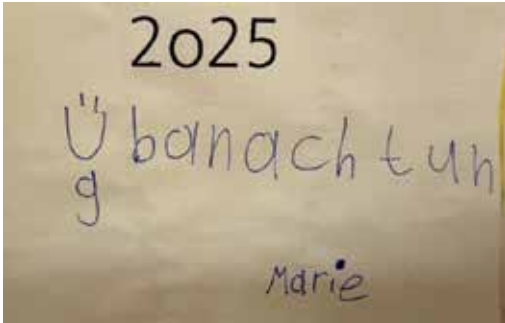 2025
Übanachtun
g
Marie